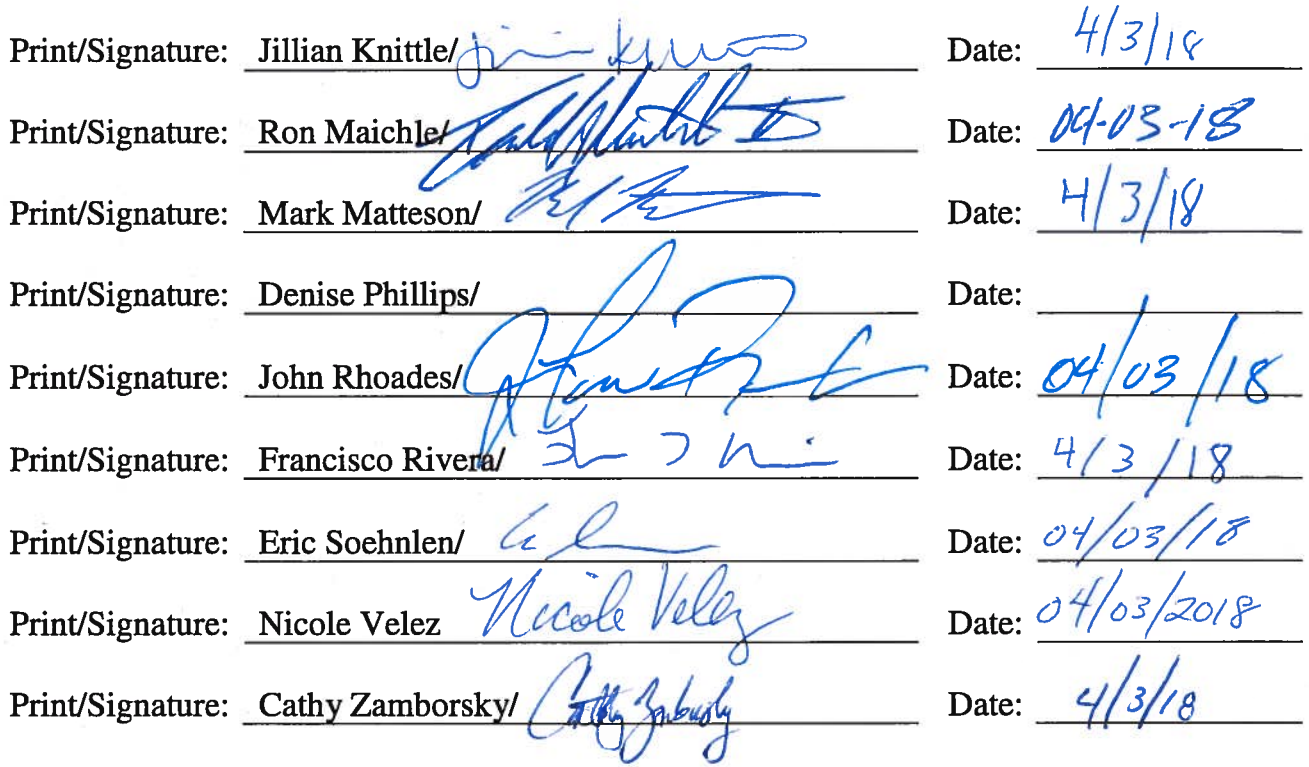 Print/Signature: Jillian Knittle/ Date: 4/3/18
Print/Signature: Ron Maichle/ Date: 04-03-18
Print/Signature: Mark Matteson/ Date: 4/3/18
Print/Signature: Denise Phillips/ Date:
Print/Signature: John Rhoades/ Date: 04/03/18
Print/Signature: Francisco Rivera/ Date: 4/3/18
Print/Signature: Eric Soehnlen/ Date: 04/03/18
Print/Signature: Nicole Velez Nicole Velez Date: 04/03/2018
Print/Signature: Cathy Zamborsky/ Cathy Zamborsky Date: 4/3/18